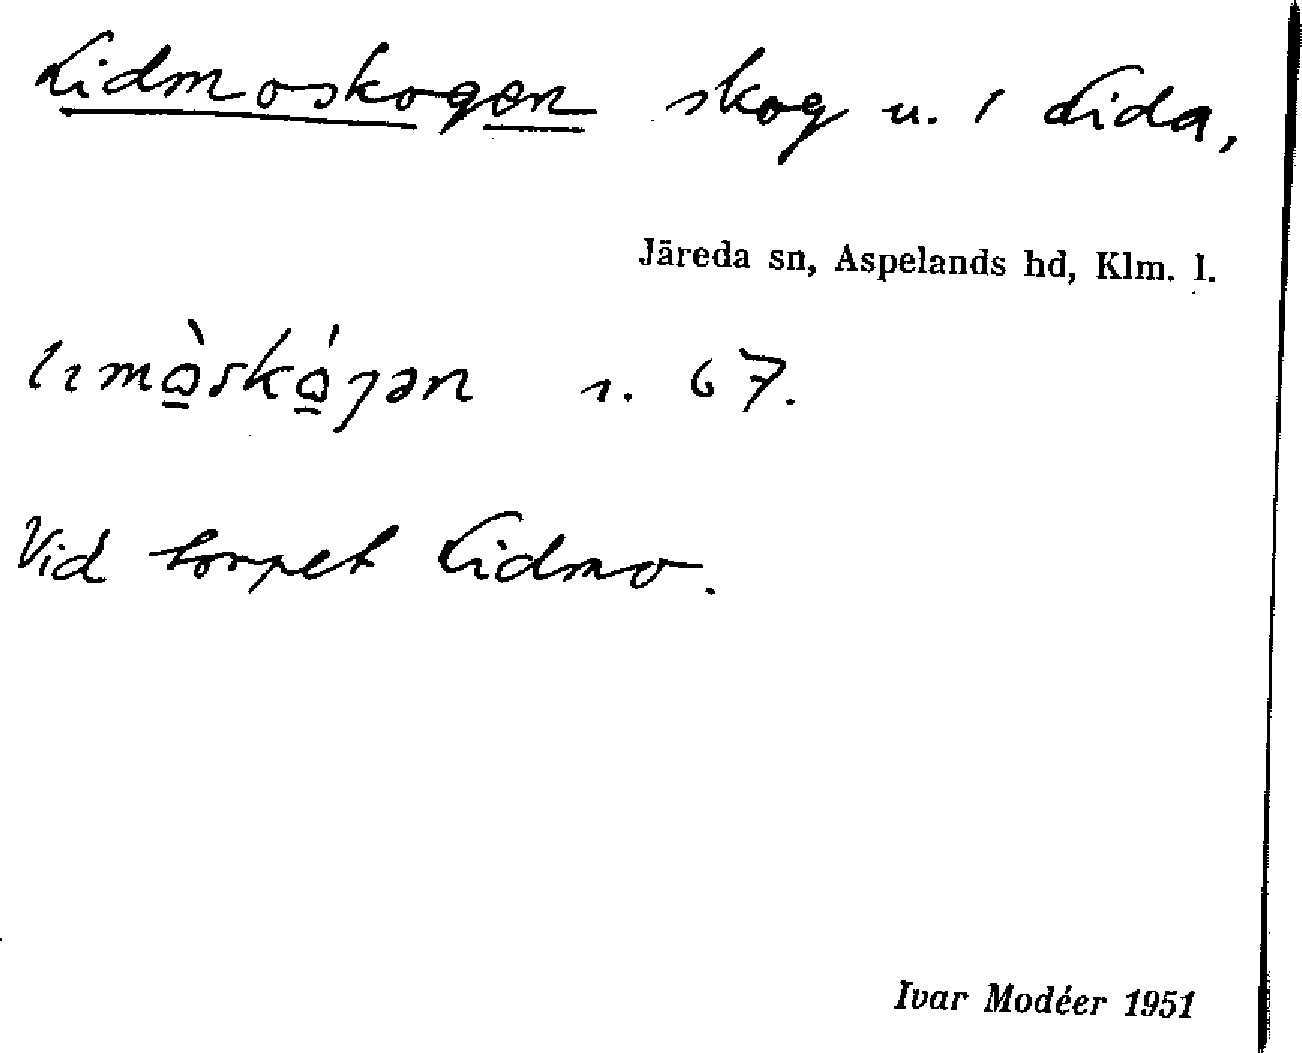 Lidmoskogen skog u. 1 Lida,
Järeda sn, Aspelands hd, Klm. l.
s. 67.
Vid torpet Lidmo.
Ivar Modéer 1951